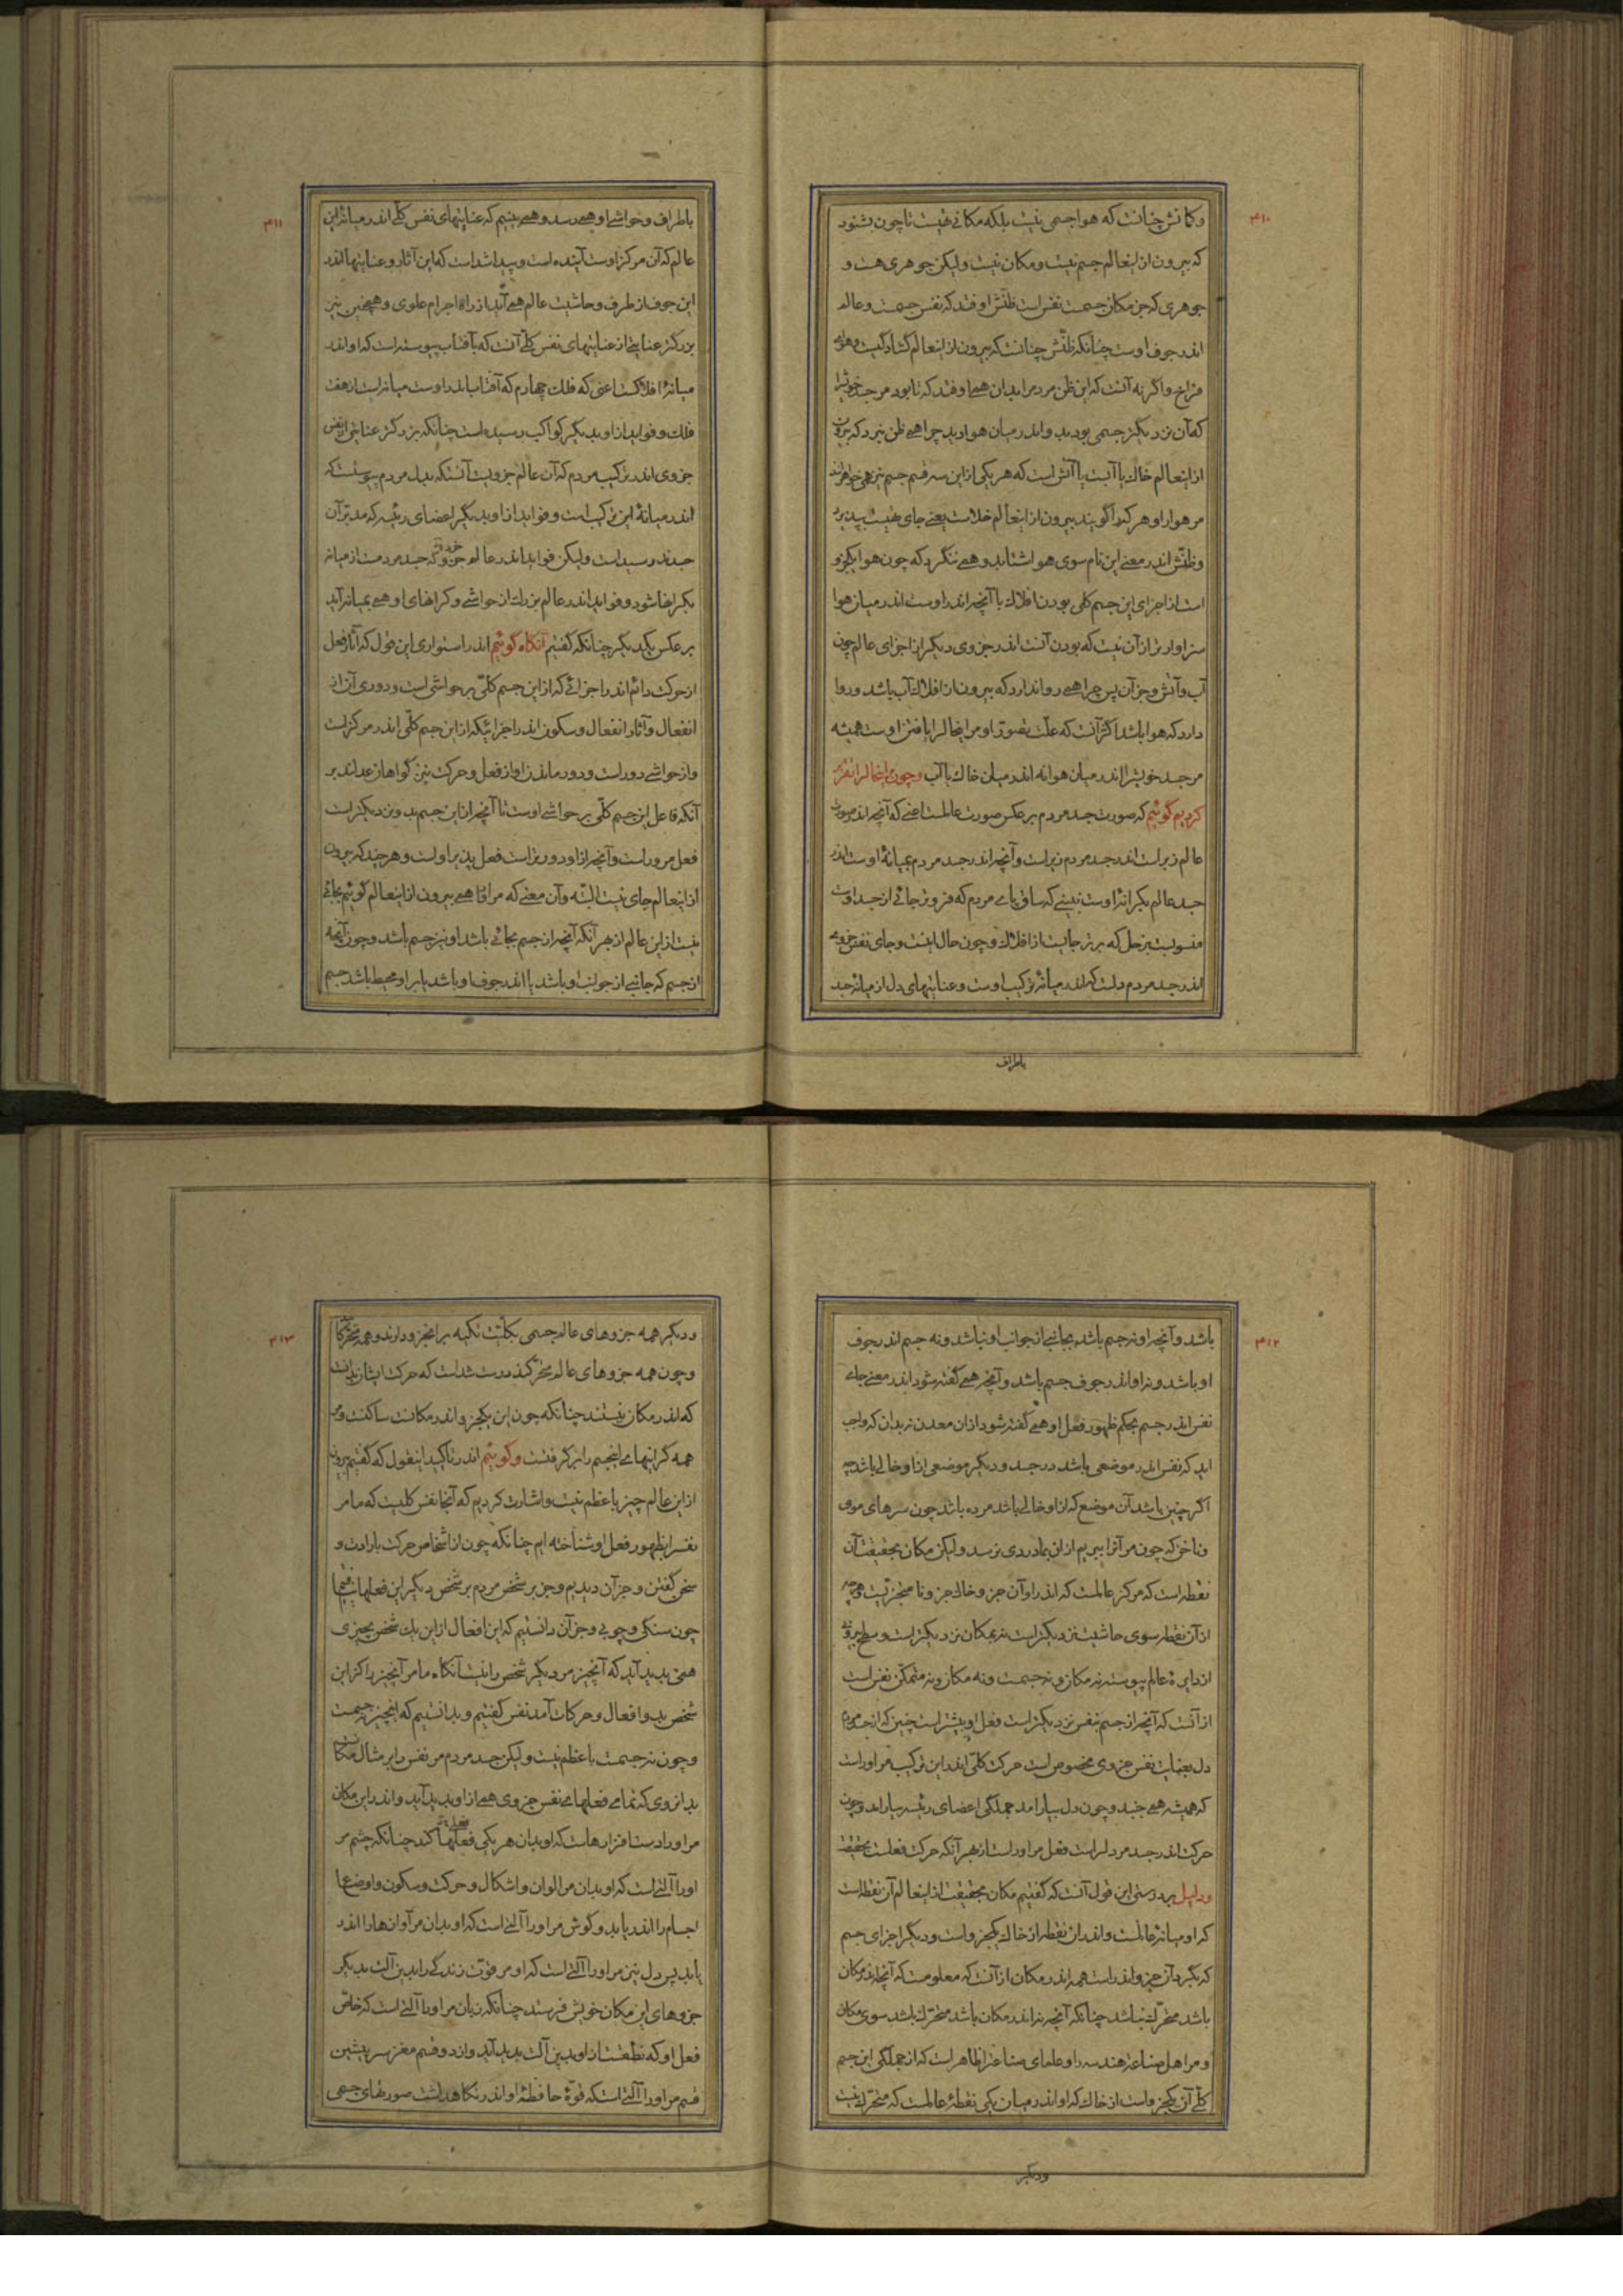 ۴۱۰
و گمانش چنانست که هوا جسمی نیست بلکه مکانی تهیست تا چون بشنود
که بیرون از اینعالم جسم نیست و مکان نیست ولیکن جوهری هست و
جوهری که جز مکان جسمست نفس است ظنش اوفتد که نفس جسمست و عالم
اندر جوف اوست چنانکه ظنّش چنانست که بیرون از اینعالم گشادگیست و هوای
فراخ و اگر نه آنست که این ظن مردم را بدان همی اوفتد که تا بود مر جسد خویش را
که آن نزدیکتر جسمی بود بدو اندر میان هوا دید چرا همی ظن نبرد که بیرون
از اینعالم خاک یا آبست یا آتش است که هر یکی از این سه قسم جسم نیز همی خواهرند
مر هوا را و هر که را گویند بیرون از اینعالم خلاست یعنی جای تهیست بپذیرد
و ظنّش اندر معنی این نام سوی هوا شتابد و همی ننگرد که چون هوا یکجزو
است از اجزای این جسم کلی بودن افلاک با آنچه اندر اوست اندر میان هوا
سزاوارتر از آن نیست که بودن آنست اندر جزوی دیگر از اجزای عالم چون
آب و آتش و جز آن پس چرا همی روا ندارد که بیرون از افلاک آب باشد و روا
دارد که هوا باشد اگر آنست که علّت تصور او مر اینحال را یافتن اوست همیشه
مر جسد خویش را اندر میان هوا نه اندر میان خاک یا آب و چون اینحال را تقریر
کردیم گوئیم که صورت جسد مردم بر عکس صورت عالمست اعنی که آنچه اندر صورت
عالم زبر است اندر جسد مردم زیر است و آنچه اندر جسد مردم بمیانهٔ اوست اندر
جسد عالم بکرانهٔ اوست نبینی که ساق پای مردم که فروتر جائی از جسد اوست
منسوبست بزحل که برتر جایست از افلاک و چون حال اینست و جای نفس جزوی
اندر جسد مردم دلست که اندر میانهٔ ترکیب اوست و عنایتهای دل از میانهٔ جسد
باطراف
۴۱۱
باطراف و حواشی او همی رسد و همی بینیم که عنایتهای نفس کلّی اندر میانهٔ این
عالم که آن مرکز اوست آینده است و پیدا شد است که این آثار و عنایتها اندر
این جوف از طرف و حاشیت عالم همی آید از راه اجرام علوی و همچنین نیز
بزرگتر عنایتی از عنایتهای نفس کلّی آنست که بآفتاب پیوسته است که او اندر
میانهٔ افلاکست اعنی که فلک چهارم که آفتاب اندر اوست میانه است از هفت
فلک و فواید از او بدیگر کواکب رسیده است چنانکه بزرگتر عنایتی از نفس
جزوی اندر ترکیب مردم که آن عالم جزویست آنستکه بدل مردم پیوستست که
اندر میانهٔ این ترکیب است و فواید از او بدیگر اعضای رئیسه که مدبّر آن
جسدند رسیداست ولیکن فواید اندر عالم جزوی که جسد مردمست از میانه
بکرانها شود و فواید اندر عالم بزرگ از حواشی و کرانهای او همی بمیانه آید
بر عکس یکدیگر چنانکه گفتیم آنکاه گوئیم اندر استواری این قول که آثار فعل
از حرکت دائم اندر اجزائی که از این جسم کلّی بر حواشی است و دوری آن از
انفعال و آثار انفعال و سکون اندر اجزائیکه از این جسم کلّی اندر مرکز است
و از حواشی دور است و دور ماندن او از فعل و حرکت نیز گواهان عدلند بر
آنکه فاعل این جسم کلّی بر حواشی اوست تا آنچه از این جسم بدو نزدیکتر است
فعل مر وراست و آنچه از او دورتر است فعل پذیر اولست و هر چند که بیرون
از اینعالم جای نیست البتّه و آن معنی که مر او را همی بیرون از اینعالم گوئیم بجائی
نیست از این عالم از بهر آنکه آنچه از جسم بجائی باشد او نیز جسم باشد و چون آنچه
از جسم که جانبی از جوانب او باشد یا اندر جوف او باشد یا بر او محیط باشد جسم
۴۱۲
باشد و آنچه او نه جسم باشد بجانبی از جوانب او نباشد و نه جسم اندر جوف
او باشد و نه او اندر جوف جسم باشد و آنچه همی گفته شود اندر معنی جای
نفس اندر جسم بحکم ظهور فعل او همی گفته شود از ان معدن نه بدان که واجب
اید که نفس اندر موضعی باشد در جسد و دیگر موضعی از او خالی باشد چه
اگر چنین باشد آن موضع که از او خالی باشد مرده باشد چون سرهای موی
و ناخن که چون مر آنرا ببریم از ان بما دردی نرسد ولیکن مکان بحقیقت آن
نقطه است که مرکز عالمست که اندر او آن جزو خاک جزو نا متجزّیست و هر چه
از آن نقطه سوی حاشیت نزدیکتر است نه بمکان نزدیکتر است و سطح بیرونی
از دایرهٔ عالم پیوسته نه مکان و نه جسمست و نه مکان و نه متمکن نفس است
از آنست که آنچه از جسم بنفس نزدیکتر است فعل او بیشتر است چنین که از جسد مردم
دل بعنایت نفس جزوی مخصوص است حرکت کلّی اندر این ترکیب مر او راست
که همیشه همی جنبد و چون دل بیارامد جملگی اعضای رئیسه بیارامد و چون
حرکت اندر جسد مر دلراست فعل مر اوراست از بهر آنکه حرکت فعلست بحقیقت
و دلیل بر درستی این قول آنست که گفتیم مکان بحقیقت از اینعالم آن نقطه است
که او میانهٔ عالمست و اندر ان نقطه از خاک یکجزو است و دیگر اجزای جسم
که بگرد آن جزو اندر است همه اندر مکان از آنست که معلومست که آنچه اندر مکان
باشد متحرّک نباشد چنانکه آنچه نه اندر مکان باشد متحرّک باشد سوی مکان
و مر اهل صناعة هندسه را و علمای صناعترا ظاهر است که از جملگی این جسم
کلّی آن یکجزو است از خاک که او اندر میان یکی نقطهٔ عالمست که متحرّک نیست
و دیگر
۴۱۳
و دیگر همه جزوهای عالم جسمی بکلّیت تکیه بر آنجزو دارند و همه متحرّکا
و چون همه جزوهای عالم متحرّکند درست شداست که حرکت ایشان بدانست
که اندر مکان نیستند چنانکه چون این یکجزو اندر مکانست ساکنست و مر
همه گرانیهای اینجسم را بر گرفتست و گوئیم اندر تاکید اینقول که گفتیم بیرون
از این عالم چیز با عظم نیست و اشارت کردیم که آنجا نفس کلیست که ما مر
نفس را بظهور فعل او شناخته ایم چنانکه چون از اشخاص حرکت بارادت و
سخن گفتن و جز آن دیدیم و جز بر شخص مردم بر شخص دیگر این فعلها نیافتیم
چون سنگی و چوبی و جز آن دانستیم که این افعال از این یک شخص بچیزی
همی پدید آید که آنچیز مر دیگر شخص را نیست آنکاه ما مر آنچیز را کز این
شخص بدو افعال و حرکات آمد نفس گفتیم و بدانستیم که اینچیز نه جسمست
و چون نه جسمست با عظم نیست ولیکن جسد مردم مر نفس را بر مثال مکانست
بدانروی که تمامی فعلهای نفس جزوی همی از او پدید آید و اندر این مکان
مر او را دست افزارهاست که او بدان هر یکی فعلها کند چنانکه چشم مر
او را آلتی است که او بدان مر الوان و اشکال و حرکت و سکون و اوضاع
اجسام را اندر یابد و گوش مر او را آلتی است که او بدان مر آوازها را اندر
یابد پس دل نیز مر او را آلتی است که او مر قوّت زندگی را بدین آلت بدیگر
جزوهای این مکان خویش فرستد چنانکه زبان مر او را آلتی است که خاصّ
فعل او که نطقست از او بدین آلت پدید آید و از دو قسم مغز سر پیشین
قسم مر او را آلتی است که قوّهٔ حافظهٔ او اندر نگاهداشت صورتهای جسمی